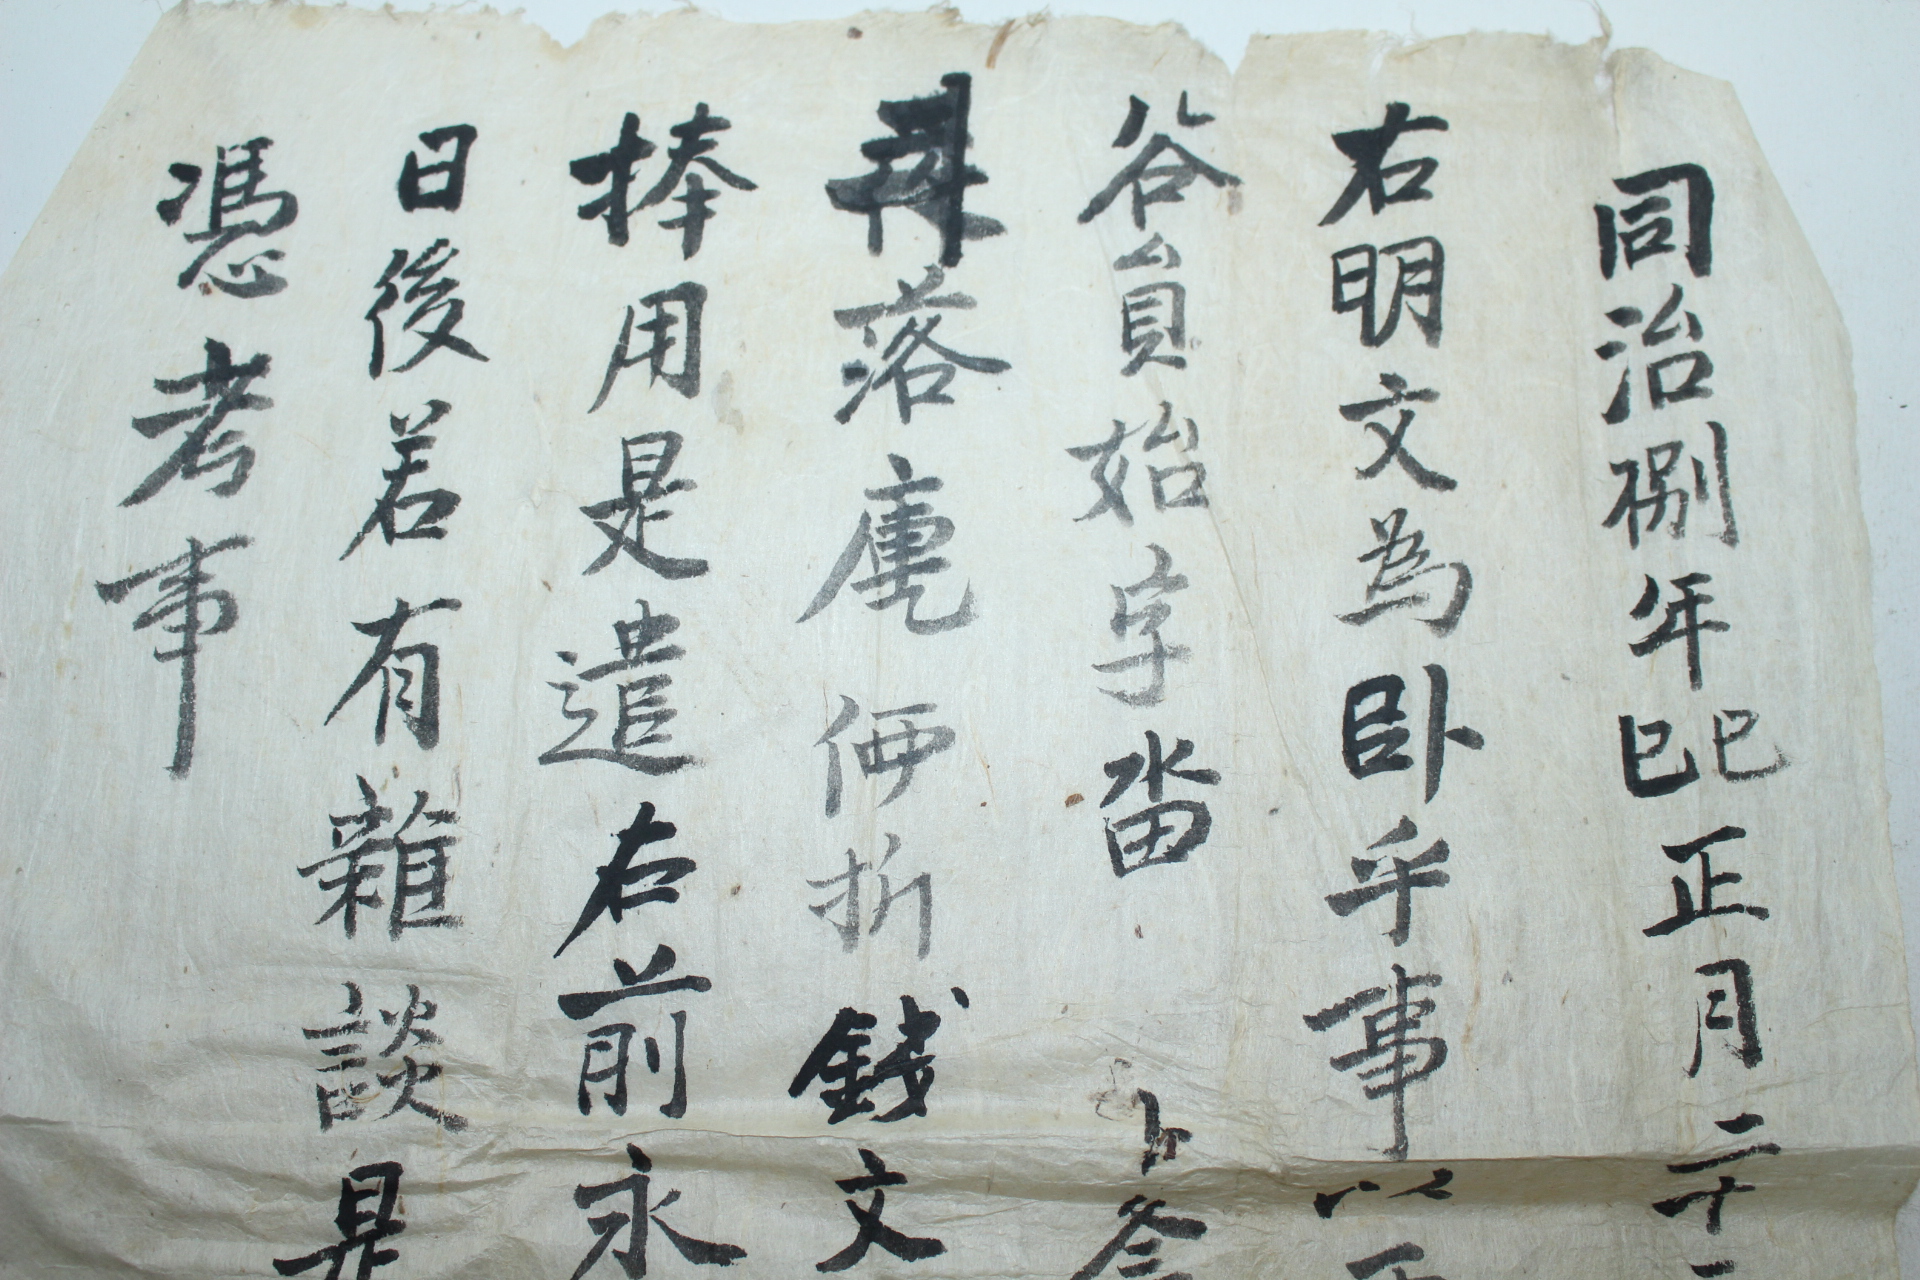 同治捌年巳巳正月二十
右明文為卧乎事
谷員始字畓
落庫価折錢文
捧用是遣右前永
日後若有雜談是
憑考事